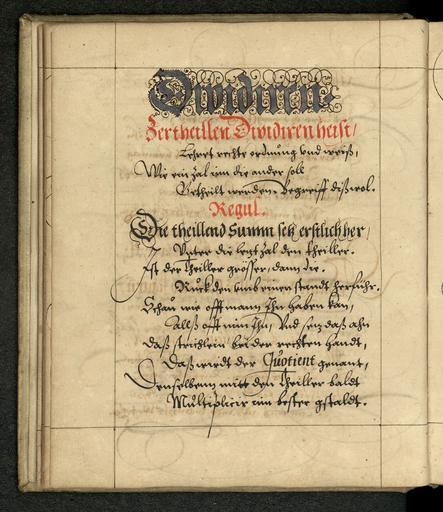 Dividiren.
Zertheillen Dividiren heist/
Lehret rechte ordnung vnd weiß,
Wie ein zal inn die ander soll
Getheilt werden. Begreiff diß wol.
Regul.
Die theillend Summ setz erstlich her/
Vnter die letzt zal den theiller.
Ist der theiller grösser, dann die.
Ruck den vmb einen standt herfuhr.
Schau wie offt mann Ihn haben kan,
Allß offt nim Ihn, Vnd setz daß ahn
Daß strichlein bei der rechten handt,
Daß wirdt der Quotient genant,
Denselbenn mitt den theiller baldt
Multiplicir inn bester gstaldt.